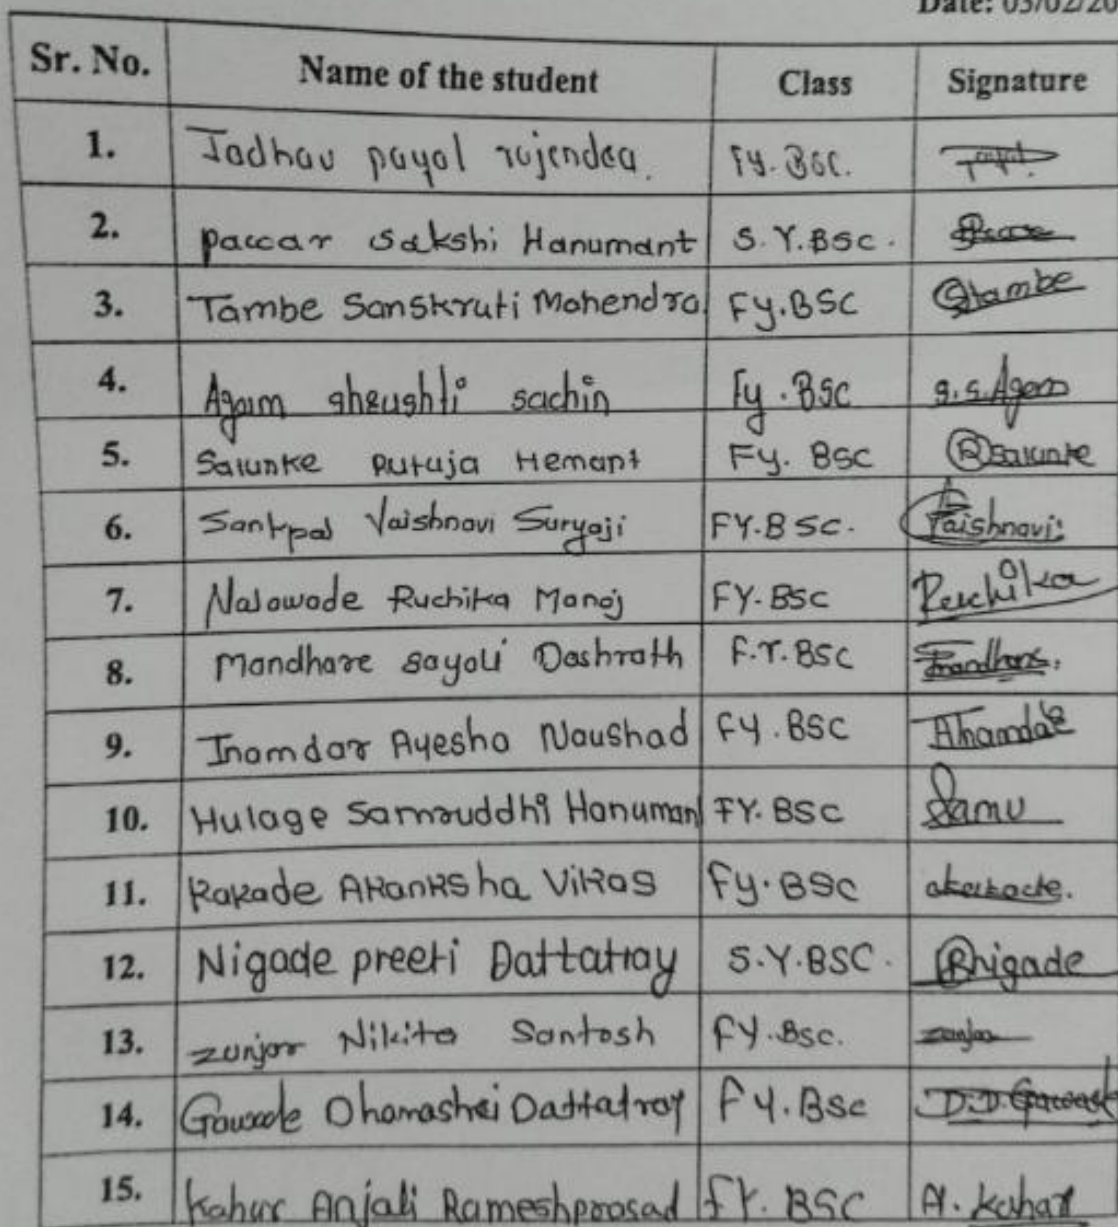 Date: 03/02/20
Sr. No. Name of the student Class Signature
1. Jadhav payal rajendra. Fy. BSC. Payal.
2. paccar sakshi Hanumant S.Y.BSC.
3. Tambe Sanskruti Mahendra Fy.BSC Stambe
4. Agam shrushti sachin Fy.BSC s.s.Agam
5. Salunke Rutuja Hemant Fy. BSC Rsalunke
6. Sankpal Vaishnavi Suryaji FY.BSC. Vaishnavi
7. Nalawade Ruchika Manoj FY.BSC Ruchika
8. Mandhare sayali Dashrath F.Y.BSC Smandhare.
9. Inamdar Ayesha Naushad FY.BSC AInamdar
10. Hulage Samruddhi Hanuman FY.BSC Samu
11. Kakade Akanksha Vikas Fy.BSC akakade.
12. Nigade preeti Dattatray S.Y.BSC. Pnigade
13. zunjar Nikita Santosh FY.Bsc. zunjar
14. Gawade Dhanashri Dattatray FY.BSc D.D.Gawade
15. Kahar Anjali Rameshprasad FY. BSC A. Kahar